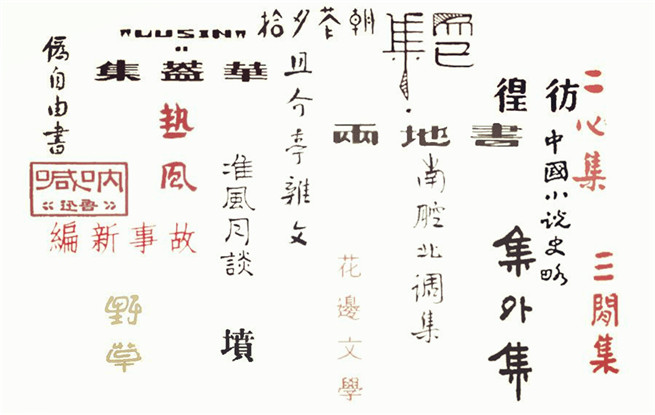 "LUSIN"
華蓋集
朝花夕拾
而已集
僞自由書
热風
且介亭雜文
兩地書
彷徨
二心集
呐喊
魯迅
准風月談
南腔北调集
中國小说史略
故事新編
野草
墳
花邊文學
集外集
三閒集